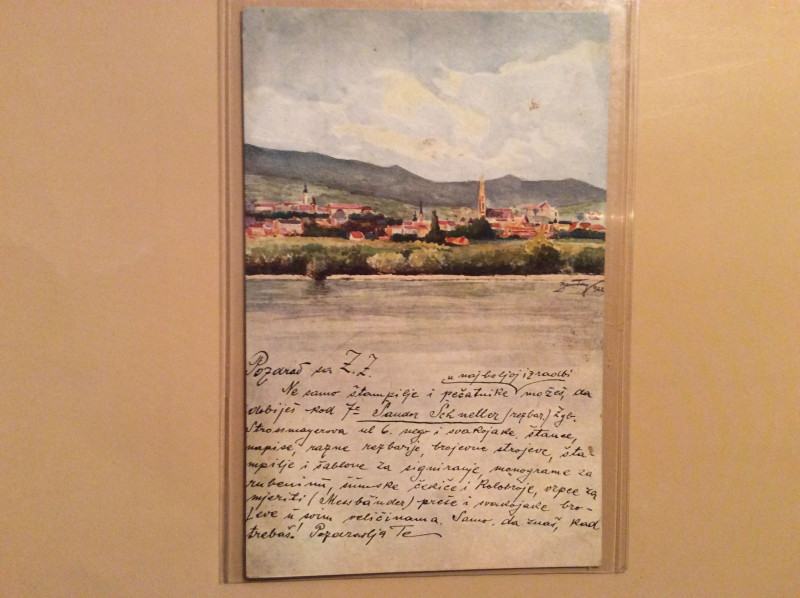 Pozdrav sa Z.Z.
u najboljoj izradbi
Ne samo štampilje i pečatnike možeš da
dobiješ kod Šandor Schneller (rezbar) Zgb.
Strossmayerova ul 6. nego i svakojake, štance,
napise, razne rezbarije, brojevne strojeve, šta-
mpilje i šablone za signiranje, monograme za
rubeninu, šumske čekiće i kolobroje, vrpce za
mjeriti (Messbänder) preše i svakojake bro-
jeve u svim veličinama. Samo, da znaš, kad
trebaš! Pozdravlja Te